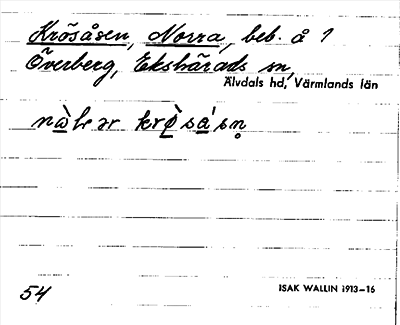 Krösåsen, Norra, beb. å 1
Överberg, Ekshärads sn,
Älvdals hd, Värmlands län
krø̀sá'sn̥
54
ISAK WALLIN 1913–16